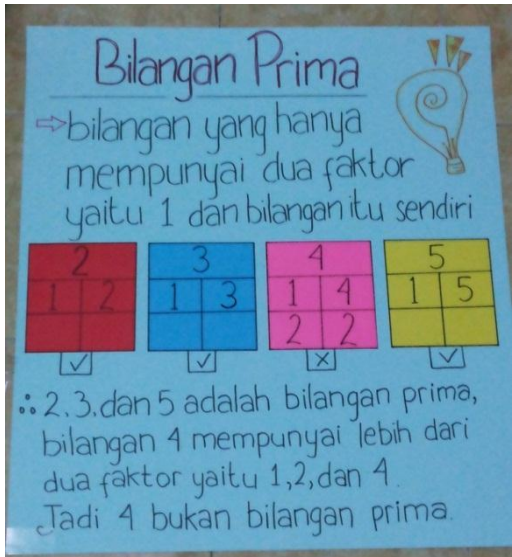 Bilangan Prima
⇨bilangan yang hanya
mempunyai dua faktor
yaitu 1 dan bilangan itu sendiri
2 3 4 5
1 2 1 3 1 4 1 5
2 2
✓ ✓ × ✓
∴ 2.3.dan 5 adalah bilangan prima,
bilangan 4 mempunyai lebih dari
dua faktor yaitu 1,2,dan 4.
Jadi 4 bukan bilangan prima.